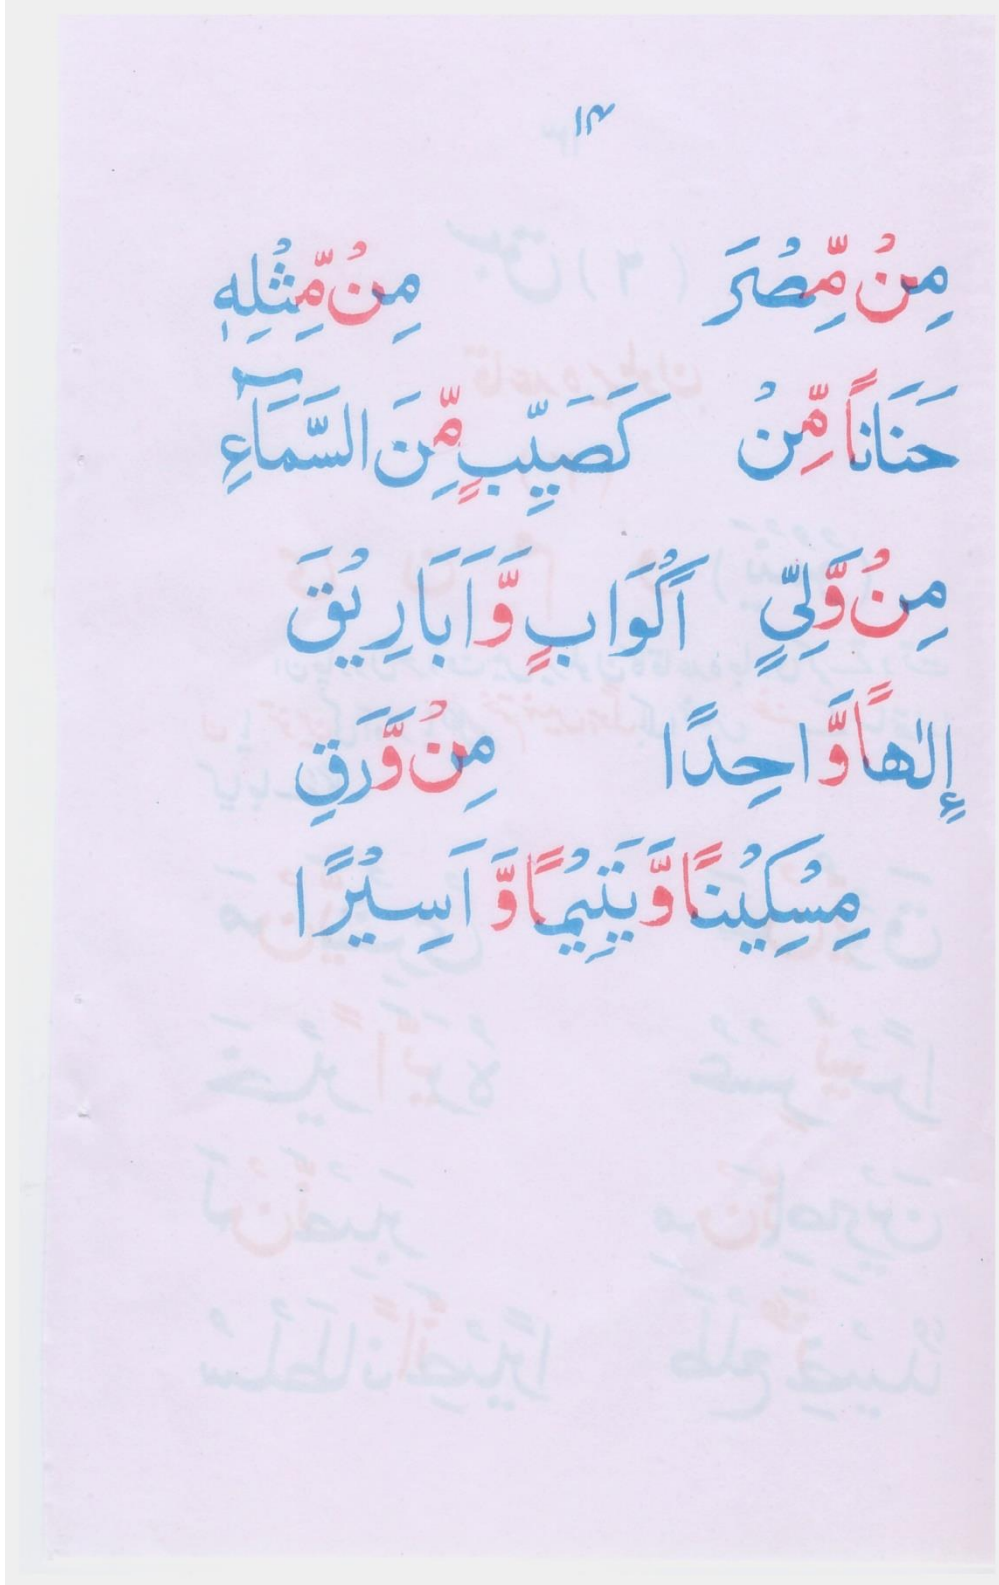 ۱۴
مِنْ مِّصْرَ مِنْ مِّثْلِهٖ
حَنَانًا مِّنْ كَصَيِّبٍ مِّنَ السَّمَآءِ
مِنْ وَّلِيٍّ اَكْوَابٍ وَّاَبَارِيْقَ
إِلٰهًا وَّاحِدًا مِنْ وَّرَقِ
مِسْكِيْنًا وَّيَتِيْمًا وَّاَسِيْرًا